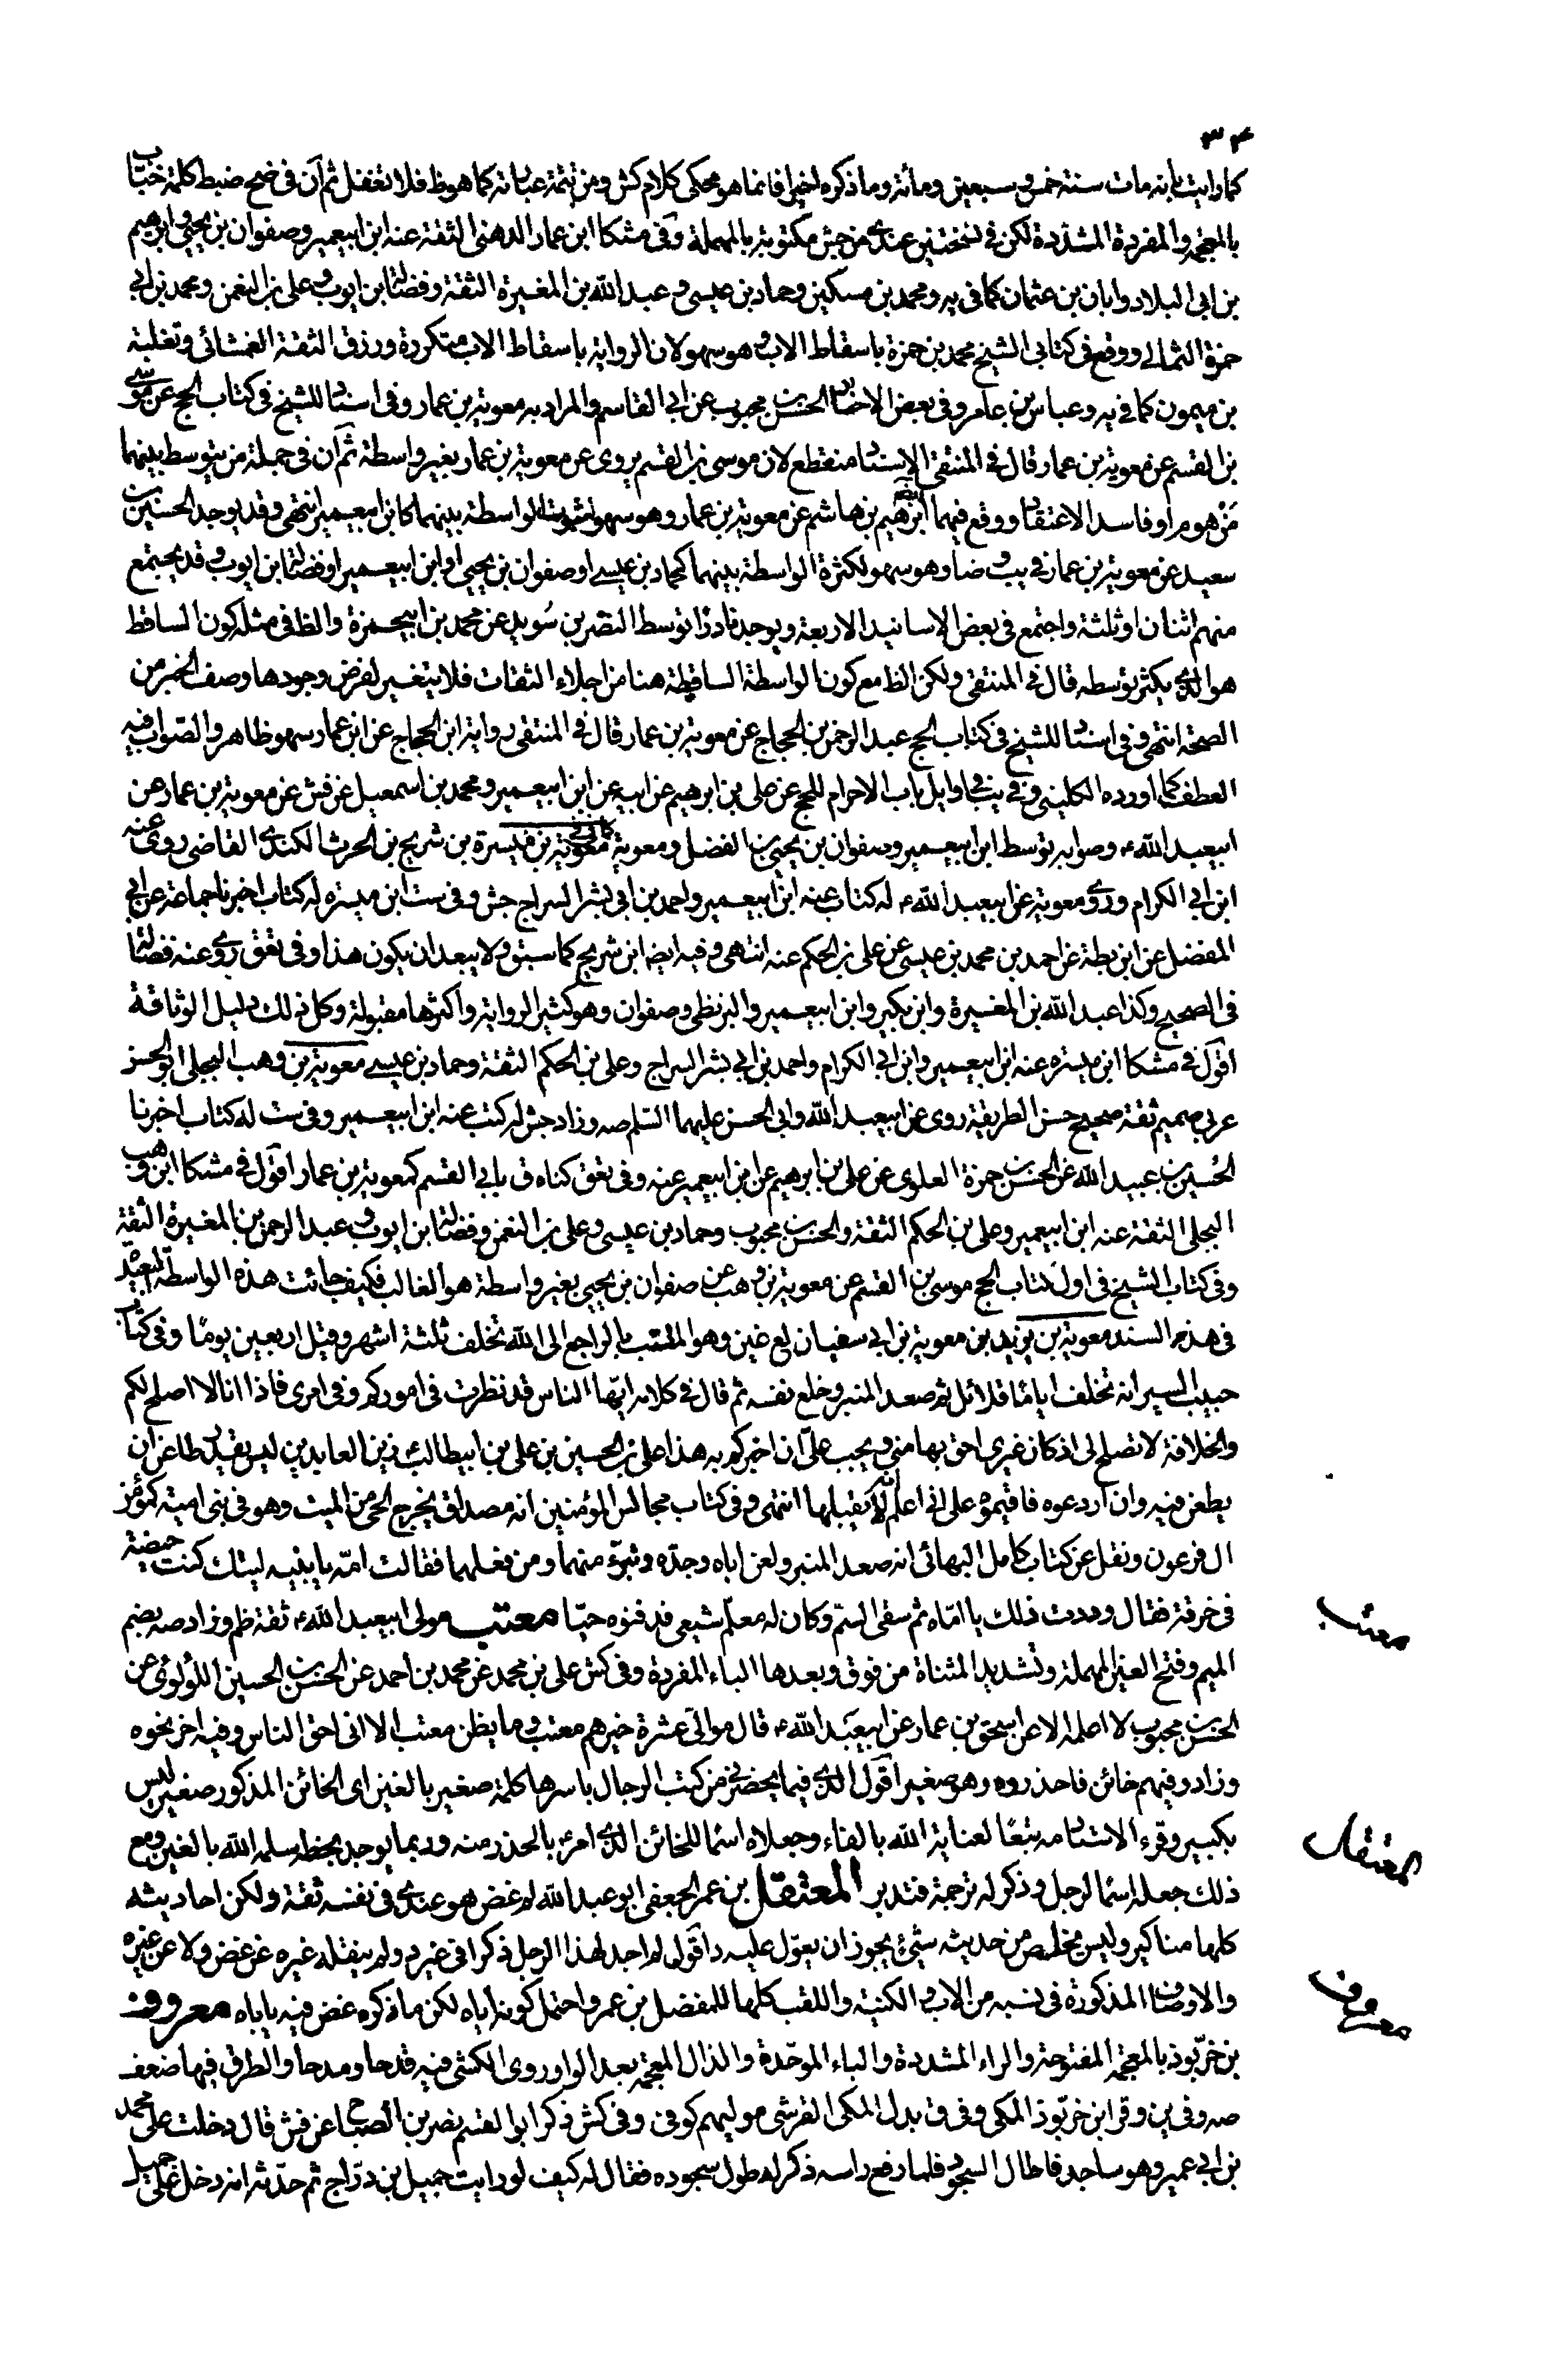 ٣٠٤
كما رايت بانه مات سنة خمس و سبعين ومائة وما ذكره اخيرا فانما هو محكى كلام كش ومن تتمة عباراته كما هو ظ فلا تغفل ثم ان فى ضح ضبط كلمة خباب
بالمعجمة والمفردة المشددة لكن فى نسختين عندى من جش مكتوبة بالمهملة وفى مشكا ابن عمار الدهنى الثقة عنه ابن ابيعمير وصفوان بن يحيى وابرهيم
بن ابى البلاد وابان بن عثمان كما فى يه ومحمد بن مسكين وحماد بن عيسى وعبد الله بن المغيرة الثقة وفضالة بن ايوب وعلى بن النعمن ومحمد بن ابى
حمزة الثمالى ووقع فى كتابى الشيخ محمد بن حمزة باسقاط الاب وهو سهو لان الرواية باسقاط الاب متكررة ورزق الثقة الغمشانى وثعلبة
بن ميمون كما فى يه وعباس بن عامر وفى بعض الاخبار الحسن بن محبوب عن ابى القاسم والمراد به معوية بن عمار وفى اسناد للشيخ فى كتاب الحج عن موسى
بن القسم عن معوية بن عمار قال فى المنتقى الاسناد منقطع لان موسى بن القسم يروى عن معوية بن عمار بغير واسطة ثم ان فى جملة من يتوسط بينهما
من هو مر او فاسد الاعتقاد ووقع فيهما ابرهيم بن هاشم عن معوية بن عمار وهو سهو لثبوت الواسطة بينهما كابن ابيعمير انتهى وقد يوجد الحسين بن
سعيد عن معوية بن عمار فى يب و صا وهو سهو لكثرة الواسطة بينهما كحماد بن عيسى او صفوان بن يحيى او ابن ابيعمير او فضالة بن ايوب وقد يجتمع
منهم اثنان او ثلثة واجتمع فى بعض الاسانيد الاربعة ويوجد نادرا توسط النضر بن سويد عن محمد بن ابيحمزة والظ فى مثله كون الساقط
هو الذى يكثر توسطه قال فى المنتقى ولكن الظ مع كون الواسطة الساقطة هنا من اجلاء الثقات فلا يتغير لفرض وجودها وصف الخبر من
الصحة انتهى وفى اسناد للشيخ فى كتاب الحج عبد الرحمن بن الحجاج عن معوية بن عمار قال فى المنتقى رواية ابن الحجاج عن ابن عمار سهو ظاهر والصواب فيه
العطف كما اورده الكلينى وفى يب فى اوايل باب الاحرام للحج عن على بن ابرهيم عن ابيه عن ابن ابيعمير ومحمد بن اسمعيل عن فش عن معوية بن عمار عن
ابيعبد الله ع وصوابه توسط ابن ابيعمير وصفوان بن يحيى بن الفضل ومعوية كما فى معوية بن ميسرة بن شريح بن الحرث الكندى القاضى روى عنه
ابن ابى الكرام وروى معوية عن ابيعبد الله ع له كتاب عنه ابن ابيعمير واحمد بن ابى بشر السراج جش وفى ست ابن ميسره له كتاب اخبرنا جماعة عن ابى
المفضل عن ابن بطة عن احمد بن محمد بن عيسى عن على بن الحكم عنه انتهى وفيه ايضا ابن شريح كما سبق ولا يبعد ان يكون هذا وفى تعق روى عنه فضالة
فى الصحيح وكذا عبد الله بن المغيرة وابن بكير وابن ابيعمير والبزنطى وصفوان وهو كثير الرواية واكثرها مقبولة وكل ذلك دليل الوثاقة
اقول فى مشكا ابن ميسره عنه ابن ابيعمير وابن ابى الكرام واحمد بن ابى بشر السراج وعلى بن الحكم الثقة وحماد بن عيسى معوية بن وهب البجلى ابو الحسن
عربى صميم ثقة صحيح حسن الطريقة روى عن ابيعبد الله وابى الحسن عليهما السلم صه وزاد جش له كتب عنه ابن ابيعمير وفى ست له كتاب اخبرنا
الحسين بن عبيد الله عن الحسن بن حمزة العلوى عن على بن ابرهيم عن ابن ابيعمير عنه وفى تعق كناه ق بابى القسم كمعوية بن عمار اقول فى مشكا ابن وهب
البجلى الثقة عنه ابن ابيعمير وعلى بن الحكم الثقة والحسن بن محبوب وحماد بن عيسى وعلى بن النعمن وفضالة بن ايوب وعبد الرحمن بن المغيرة الثقة
وفى كتاب الشيخ فى اول كتاب الحج موسى بن القسم عن معوية بن وهب عن صفوان بن يحيى بغير واسطة هو الغالب فكيف جائت هذه الواسطة البعيدة
فى هذه السند معوية بن يزيد بن معوية بن ابى سفيان لع غين وهو الملقب بالراجع الى الله تخلف ثلثة اشهر وقيل اربعين يوما وفى كتاب
حبيب السير انه تخلف اياما قلائل ثم صعد المنبر وخلع نفسه ثم قال فى كلامه ايها الناس قد نظرت فى اموركم وفى امرى فاذا انا لا اصلح لكم
والخلافة لا تصلح لى اذ كان غيرى احق بها منى ويجب على ان اخبركم به هذا على بن الحسين بن على بن ابيطالب زين العابدين ليس يقدر طاعن ان
يطعن فيه وان اردتموه فاقيموه على انى اعلم انه لا يقبلها انتهى وفى كتاب مجالس المؤمنين انه مصداق يخرج الحى من الميت وهو فى بنى امية كمؤمن
ال فرعون ونقل عن كتاب كامل البهائى انه صعد المنبر ولعن اباه وجده وتبرء منهما ومن فعلهما فقالت امه يا بنيه ليتك كنت حيضة
فى خرقة فقال وددت ذلك يا اماه ثم سقى السم وكان له معلم شيعى فدفنوه حيا معتب مولى ابيعبد الله ع ثقة ظم وزاد صه بضم
الميم وفتح العين المهملة وتشديد المثناة من فوق وبعدها الباء المفردة وفى كش على بن محمد عن محمد بن احمد عن الحسن بن الحسين اللؤلؤى عن
الحسن بن محبوب لا اعلمه الا عن اسحق بن عمار عن ابيعبد الله ع قال موالى عشرة خيرهم معتب وما يظن معتب الا انى احق الناس وفيه اخر نحوه
وزاد وفيهم خائن فاحذروه وهو صغير اقول الذى فيما يحضرنى من كتب الرجال باسرها كلمة صغير بالغين اى الخائن المذكور صغير ليس
بكبير وقرء الاستاد مه تبعا لعناية الله بالفاء وجعلاه اسما للخائن الذى امر ع بالحذر منه وربما يوجد بخطه سلمه الله بالغين ومع
ذلك جعله اسما لرجل وذكر له ترجمة فتدبر المعتقل بن عمر الجعفى ابو عبد الله له غض هو عندى فى نفسه ثقة ولكن احاديثه
كلها مناكير وليس مخلص من حديثه شئ يجوز ان يعول عليه د اقول لم اجد لهذا الرجل ذكرا فى غير د ولم ينقله غيره عن غض ولا عن غيره
والاوصاف المذكورة فى نسبه من الاب والكنية واللقب كلها للمفضل بن عمر واحتمل كونه اياه لكن ما ذكره غض فيه ياباه معروف
بن خربوذ بالمعجمة المفتوحة والراء المشددة والباء الموحدة والذال المعجمة بعد الواو روى الكشى فيه قدحا ومدحا والطرق فيها ضعف
صه وفى ين وقر ابن خربوذ المكى وفى ق بدل المكى القرشى موليهم كوفى وفى كش ذكر ابو القسم نصر بن الصباح عن فش قال دخلت على محمد
بن ابى عمير وهو ساجد فاطال السجود فلما رفع راسه ذكر له طول سجوده فقال له كيف لو رايت جميل بن دراج ثم حدثه انه دخل على جميل
معتب
المعتقل
معروف